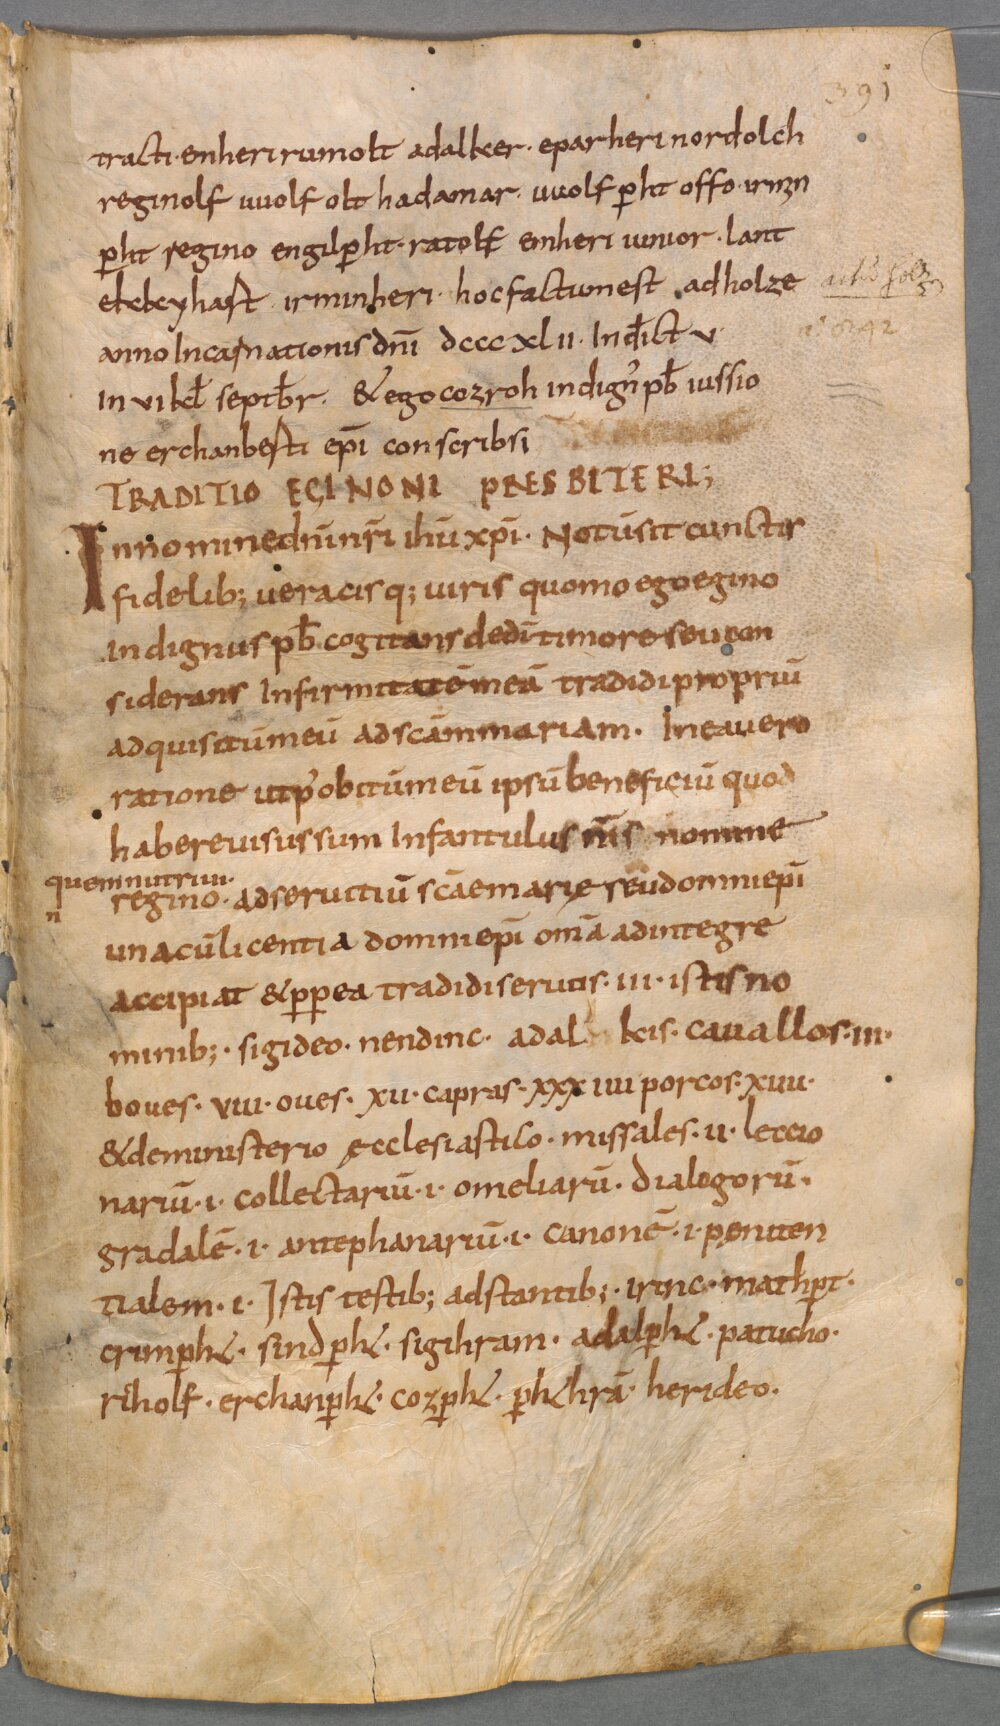 391
tracti · enheri rumolt adalker · eparheri nordolch
reginolf uuolfolt hadamar · uuolfp̄ht offo · irnzn
p̄ht regino engilp̄ht · ratolf emheri iunior · lant
ekkeyhaft · irminheri · hoc factum est ad holze
anno Incarnationis dn̄i dcccxlii · Indict̄ v ·
In vi kl̄ septb̄r · & ego cozroh indign᾽ pb̄ iussio
ne erchanberti ep̄i conscribsi
TRADITIO EGINONI PRESBITERI;
In nomine dn̄i nr̄i ihū xp̄i · Notū sit cunctis
fidelib; ueracisq; uiris quomo ego egino
indignus pb̄ cogitans dedi timore seu con
siderans Infirmitatē meā tradidi propriū
adquisitū meū ad scām mariam · In ea uero
ratione ut p᾽ obitū meū ipsū beneficiū quod
habere uisus sum Infantulus m̄s nomine
quem nutriui ·
regino · ad seruitiū scāe marie seu domni ep̄i
n
una cū licentia domni ep̄i om̄a ad integre
accipiat & p̱p̱ea tradidi seruis · iii · istis no
minib; · sigideo · nendinc · adal kis · cauallos · iii ·
boues · viii · oues · xii · capras · xxxiiii porcos · xiiii ·
& de ministerio ęcclesiastico · missales · ii · leccio
nariū · i · collectariū · i · omeliarū · dialogorū ·
gradalē · i · antephanariū · i · canonē · i · peniten
tialem · i · Istis testib; adstantib; · irinc · mathp̱t ·
crimp̱h& · sindp̱h& · sigihram · adalp̱h& · patucho ·
riholf · erchanp̱h& · cozp̱h& · p̱h&hrā · herideo ·